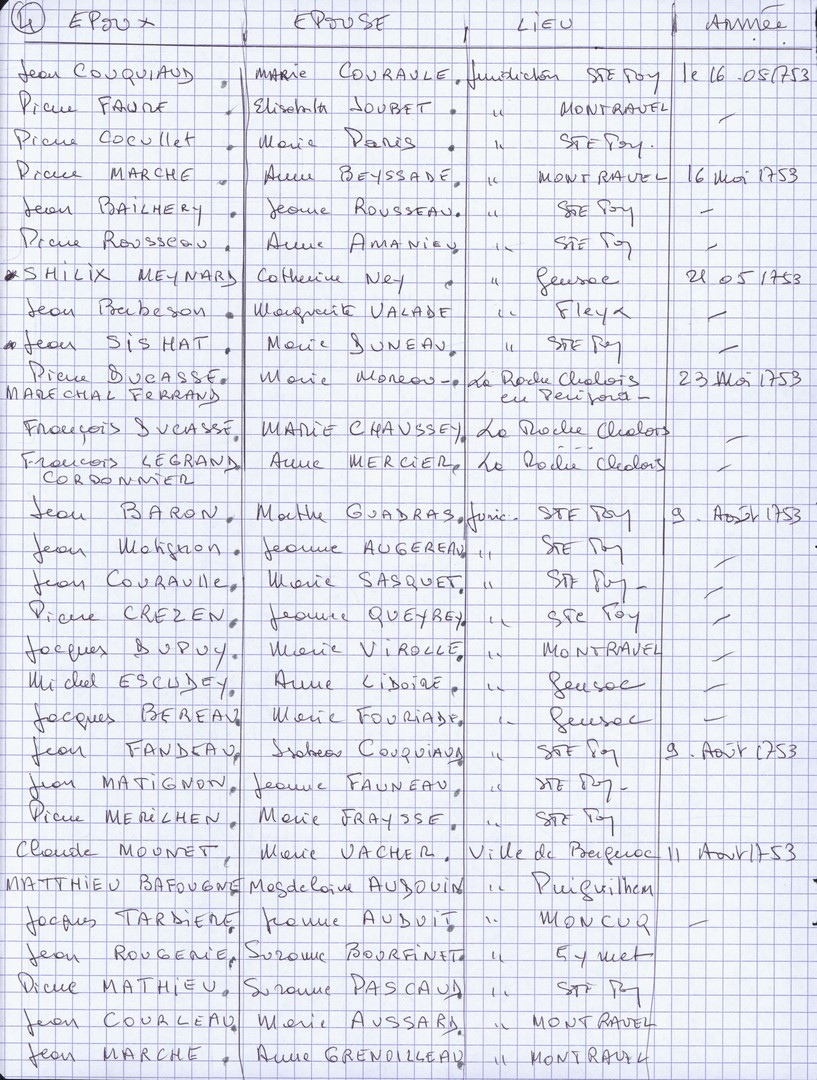 4 EPOUX EPOUSE LIEU ANNÉE
Jean COUQUIAUD. MARIE COURAULE. Juridiction STE Foy le 16.05/753
Pierre FAURE Elisabeth JOUBET. " MONTRAVEL –
Pierre Cocullet. Marie Paris. " STE Foy.
Pierre MARCHE Anne BEYSSADE. " MONTRAVEL 16 Mai 1753
Jean BAILHERY. Jeanne ROUSSEAU. " STE Foy –
Pierre Rousseau. Anne AMANIEU " STE Foy –
SHILIX MEYNARD Catherine Ney. " Gensac 21 05 1753
Jean Babeson. Marguerite VALADE " Fleyx –
Jean SISHAT. Marie DUNEAU. " STE Foy –
Pierre DUCASSE. Marie Moreau -. La Roche Chalais 23 Mai 1753
MARECHAL FERRAND en Perigord –
François DUCASSE. MARIE CHAUSSEY. La Roche Chalais –
Francois LEGRAND Anne MERCIER. La Roche Chalais –
CORDONNIER
Jean BARON. Marthe GUADRAS. Juric. STE Foy 9. Août 1753
Jean Matignon. Jeanne AUGEREAU " STE Foy –
Jean COURAULLE. Marie SASQUET. " STE Foy – –
Pierre CREZEN. Jeanne QUEYREY. " STE Foy –
Jacques DUPUY. Marie VIROLLE. " MONTRAVEL –
Michel ESCUDEY. Anne LIDOIRE. " Gensac –
Jacques BEREAU. Marie FOURIADE. " Gensac –
Jean FANDEAU. Isabeau COUQUIAUD " STE Foy 9. Août 1753
Jean MATIGNON. Jeanne FAUNEAU. " STE Foy –
Pierre MERILHEN. Marie FRAYSSE. " STE Foy
Claude MOUNET. Marie VACHER. Ville de Bergerac 11 Aout 1753
MATTHIEU BAFOUGNE Magdelaine AUDOUIN " Puiguilhem
Jacques TARDIERE. Jeanne AUDUIT. " MONCUQ –
Jean ROUGERIE. Suzanne BOURFINET. " Eymet
Pierre MATHIEU. Suzanne PASCAUD " STE Foy
Jean COURLEAU. Marie AUSSARD. " MONTRAVEL
Jean MARCHE. Anne GRENOILLEAU " MONTRAVEL